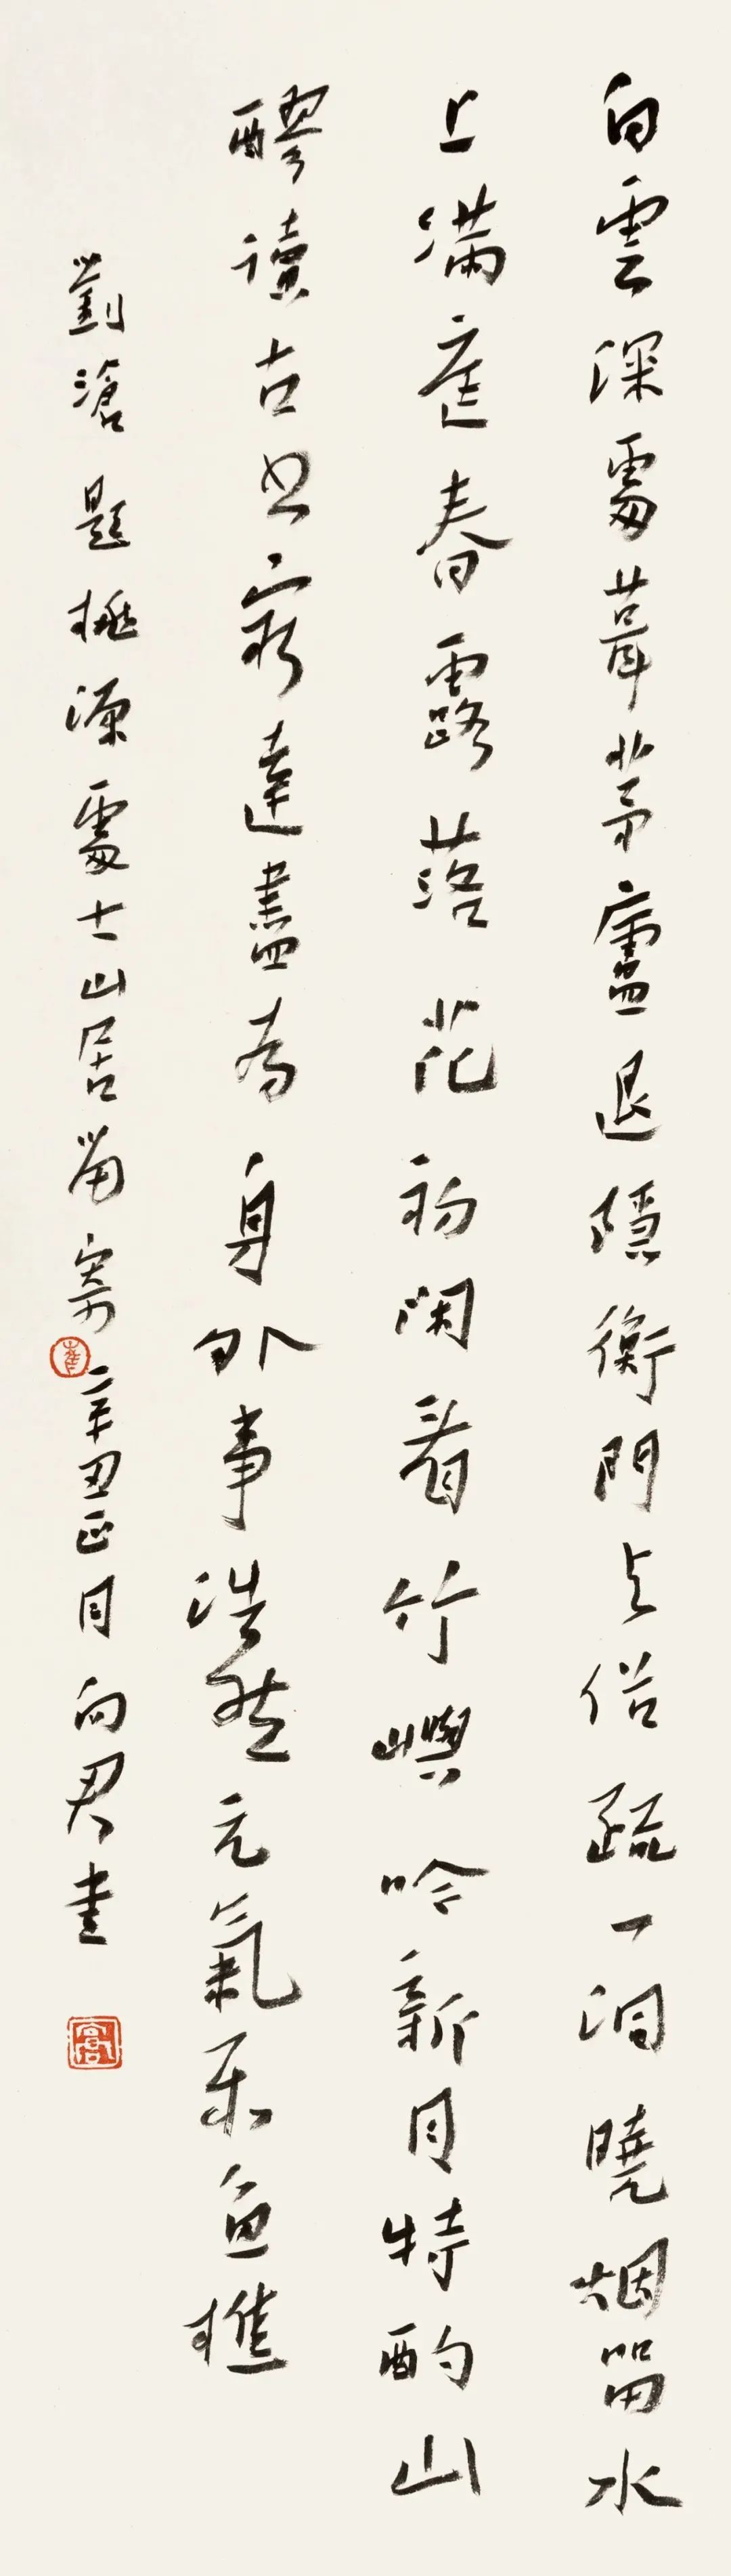 白雲深處葺茅廬退隱衡門与俗疏一洞曉烟留水
上滿庭春露落花初閑看竹嶼吟新月特酌山
醪讀古书窮達盡为身外事浩然元氣樂魚樵
劉滄題桃源處士山居留寄辛丑正月向君書